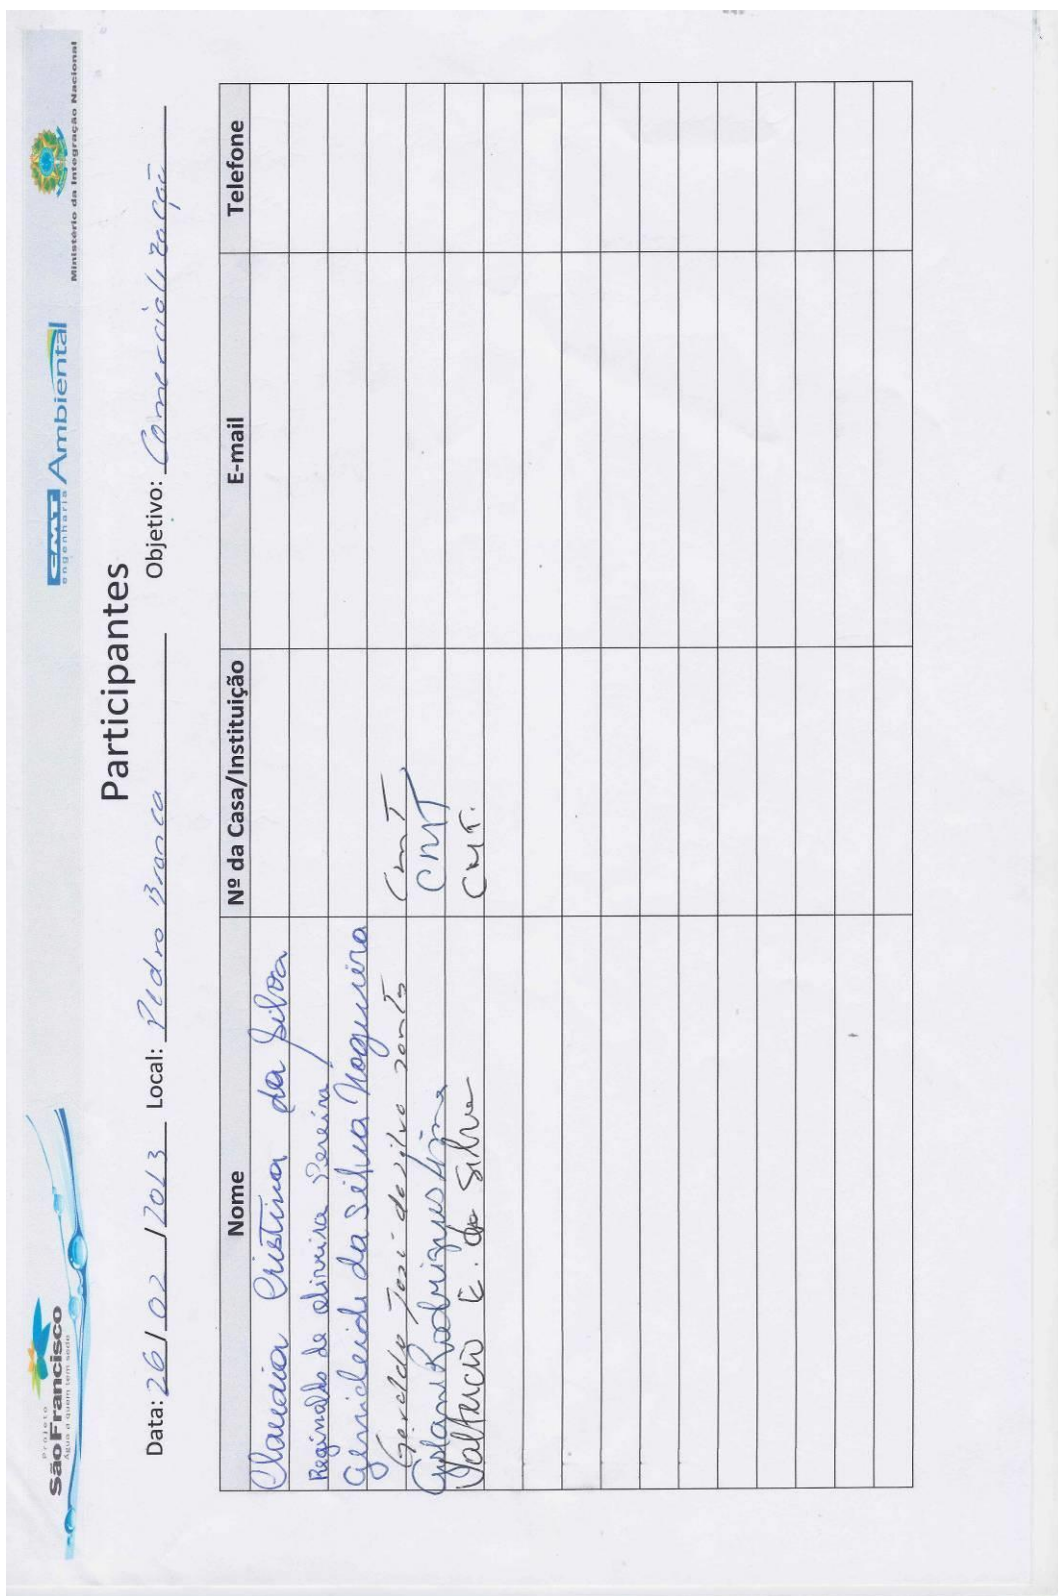 Projeto
São Francisco
Água a quem tem sede
CMT Ambiental
engenharia
Ministério da Integração Nacional
Participantes
Data: 26/02/2013 Local: Pedra Branca Objetivo: Comercialização
Nome Nº da Casa/Instituição E-mail Telefone
Claudia Cristina da Silva
Reginaldo de Oliveira Pereira
Genicleide da Silva Nogueira
Geraldo José da Silva Santos CMT
Rodrigues Lima CMT
E. da Silva CMT.